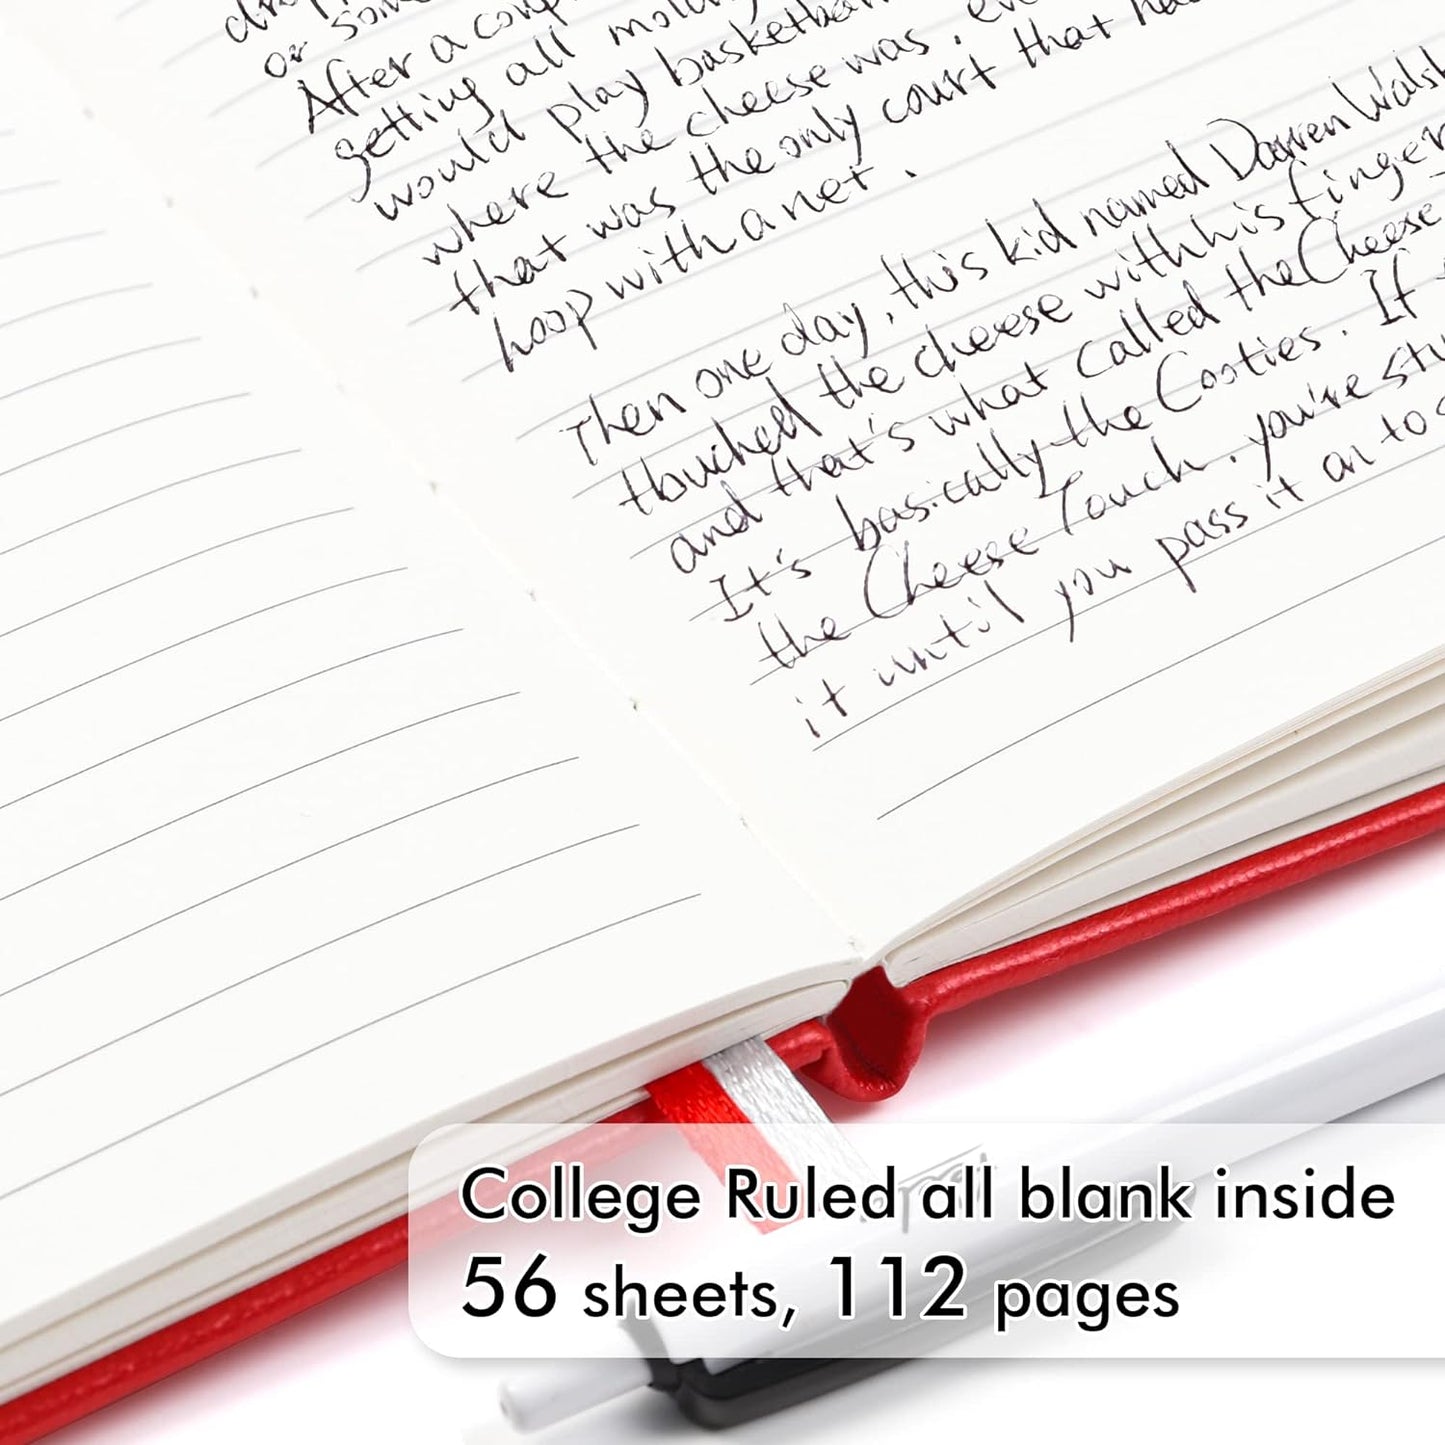 or some
After a coup
getting all moldy
would play basketball
where the cheese was. ev
that was the only court that ha
hoop with a net.
Then one day, this kid named Darren Walsh
touched the cheese with his finger
and that's what called the Cheese
It's basically the Cooties. If
the Cheese Touch, you're stu
it until you pass it on to s
College Ruled all blank inside
56 sheets, 112 pages